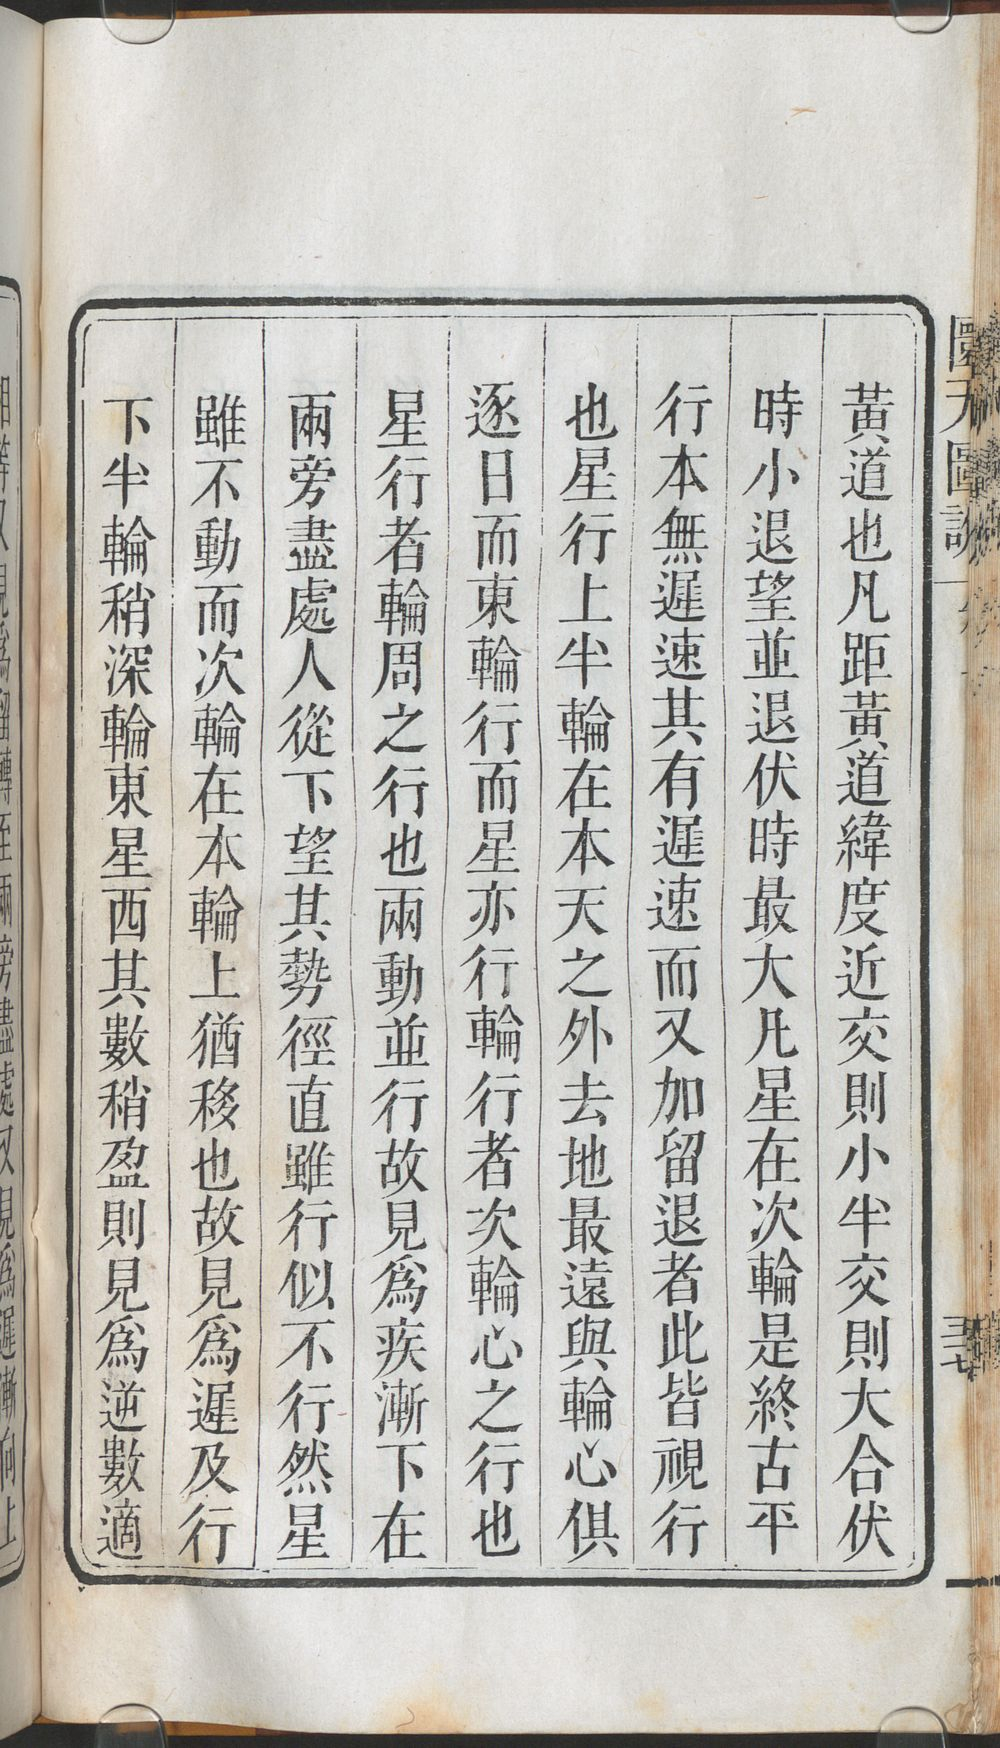 黃道也凡距黃道緯度近交則小半交則大合伏
時小退望並退伏時最大凡星在次輪是終古平
行本無遲速其有遲速而又加留退者此皆視行
也星行上半輪在本天之外去地最遠與輪心俱
逐日而東輪行而星亦行輪行者次輪心之行也
星行者輪周之行也兩動並行故見爲疾漸下在
兩旁盡處人從下望其勢徑直雖行似不行然星
雖不動而次輪在本輪上猶移也故見爲遲及行
下半輪稍深輪東星西其數稍盈則見爲逆數適